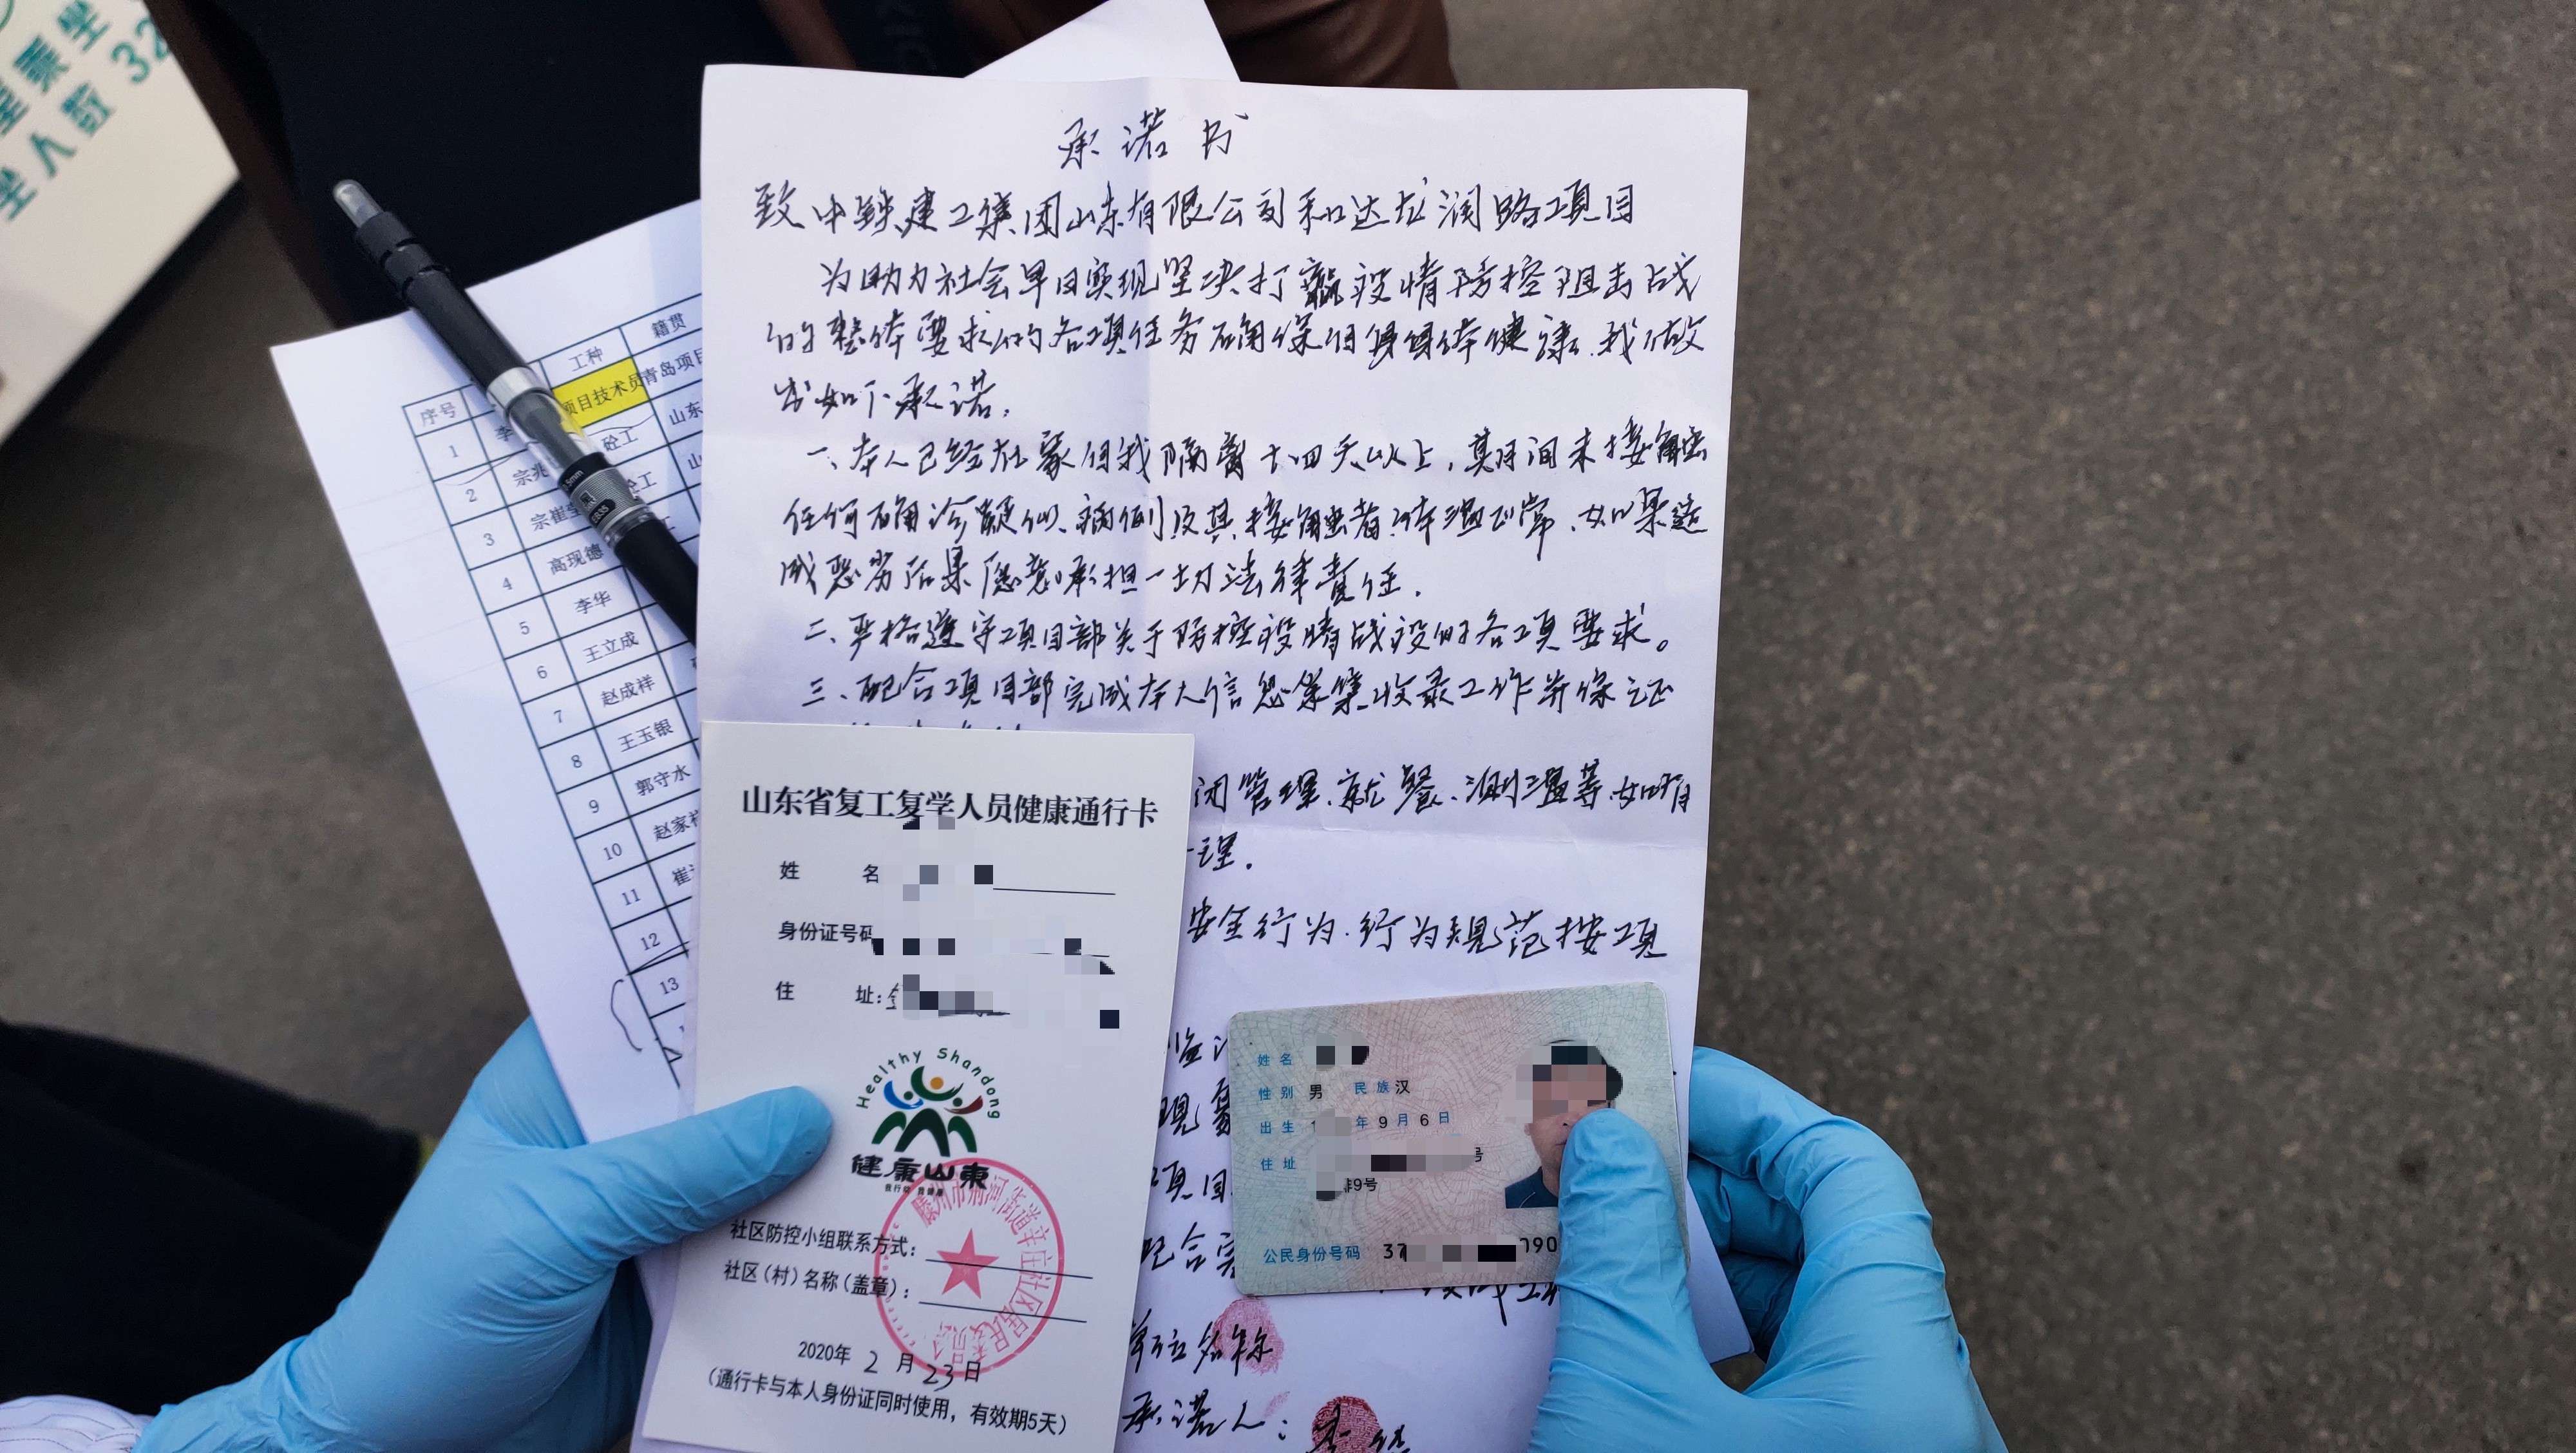 坐人数 32
序号
工种
籍贯
1
李
项目技术员
青岛项目
2
宗兆
砼工
山东
3
宗崔
砼工
山
4
高现德
5
李华
6
王立成
7
赵成祥
8
王玉银
9
郭守水
10
赵家祥
11
崔
12
13
承诺书
致中铁建工集团山东有限公司和达龙润路项目
为助力社会早日实现坚决打赢疫情防控阻击战
的整体要求的各项任务确保自身身体健康.我做
出如下承诺.
一、本人已经在家自我隔离十四天以上,其间未接触
任何确诊疑似、病例及其接触者.体温正常、如果造
成恶劣后果愿意承担一切法律责任.
二、严格遵守项目部关于防控疫情战役的各项要求。
三、配合项目部完成本人信息采集收录工作并保证
闭管理、就餐、测温等.如有
理.
安全行为.行为规范按项
项目
配合完
单位名称
承诺人:李
山东省复工复学人员健康通行卡
姓 名
身份证号码
住 址:
Healthy Shandong
健康山东
我行动 我健康
社区防控小组联系方式:
社区(村)名称(盖章):
2020年 2 月 23 日
(通行卡与本人身份证同时使用,有效期5天)
姓名
性别 男 民族 汉
出生 1 年 9 月 6 日
住址 号
排9号
公民身份号码 37 090